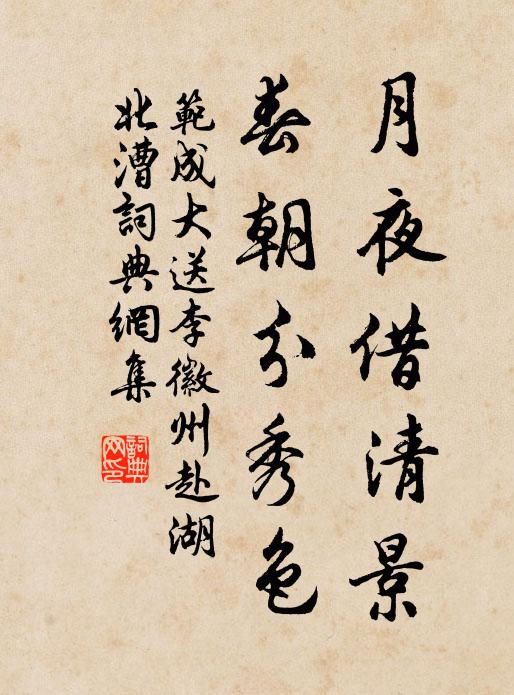 月夜借清景
春朝分秀色
範成大送李徽州赴湖
北漕詞典網集
詞典
网印